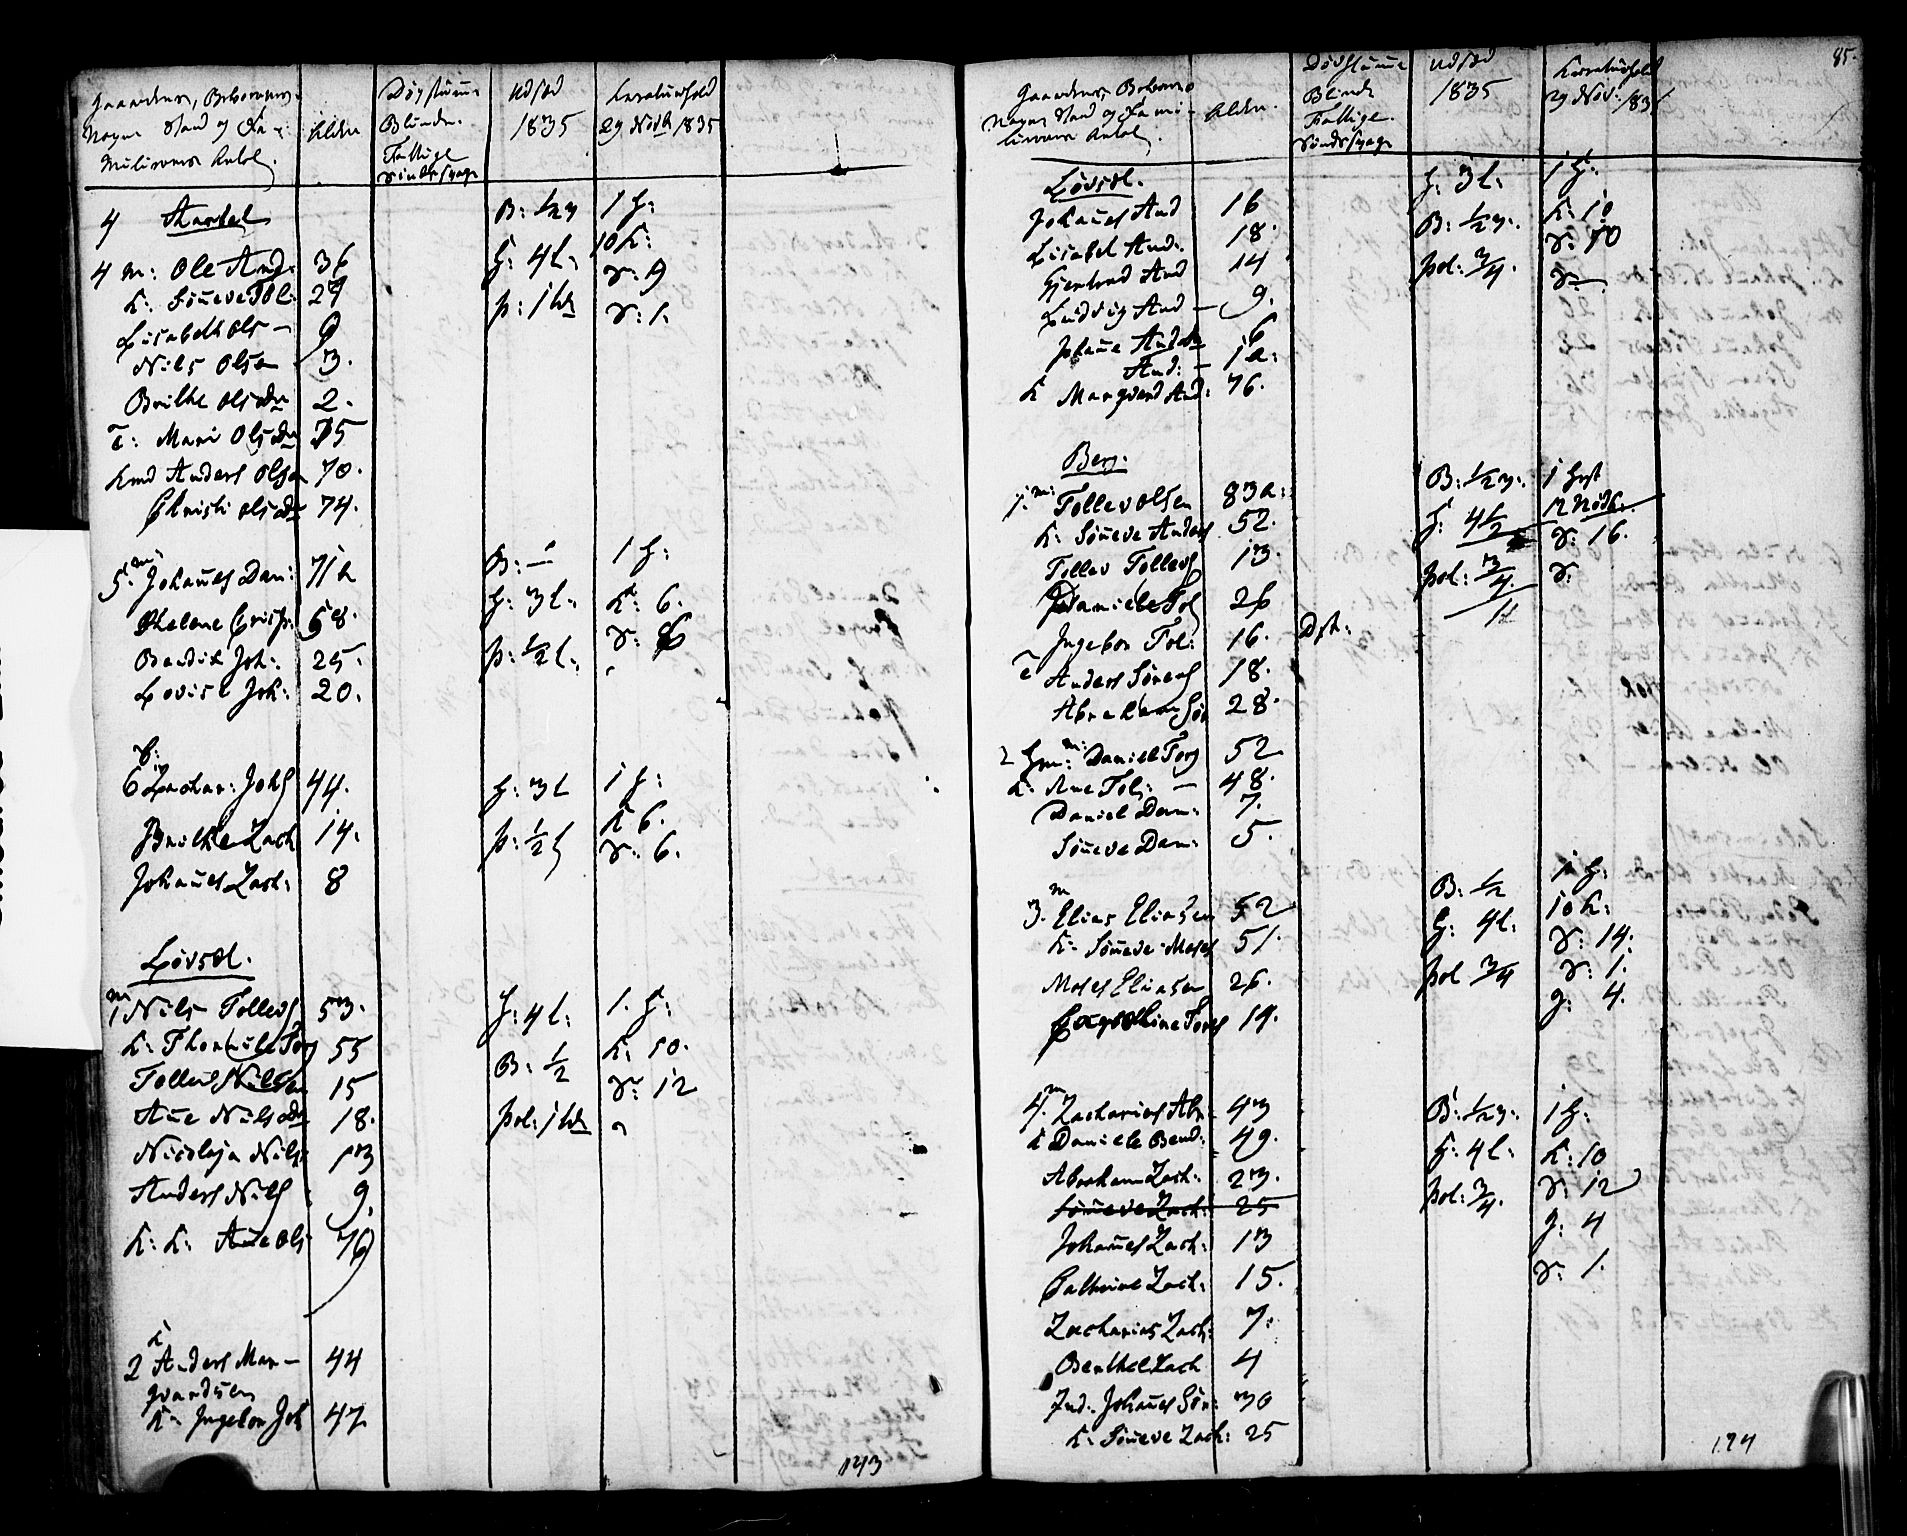 Gaardens, Beboernes
Navne Stand og Fa-
miliernes Antal.
Alder
Døvstumme
Blinde.
Fattige
Sindssvage
Udsæd
1835
Kreaturhold
29 Novbr 1835
4
B: 1/2 t 1 H:
4 m: Ole And: 36 H: 4 t: 10 K:
K: Sǿneve Tol: 29 S: 9
Lisabeth Ols — 9 S: 1.
Nils Olsen 3.
Brithe Olsdtr 2.
T: Mari Olsdtr 75
Anders Olsen 70.
Christi Olsdtr 74.
5. m Johannes Dan: 71 a B: — 1 H:
Helene 68. H: 3 t: K: 6.
Bendik Joh: 25. P: 1/2 t: S: 6
Lovise Joh: 20.
6 Zachar: Johs 44. H: 3 t 1 H:
Brithe Zach 14. P: 1/2 t K 6.
Johannes Zach: 8 S: 6.
Løvdal.
m
1 Nils Tollevs 53. H: 4 t: 1. H:
K: Thormile Torg 55 K: 10.
Tollev Nilsen 15 B: 1/2 S: 12
Ane Nilsdtr 18. Pot: 1 td
Nicolaja Nils: 13
Anders Nils 9.
K: K: Ane Ols: 76
K
2 Anders Mar- 44
qvardsen
K: Ingebor Joh 47
143
85.
Gaardens, Beboernes
Navne Stand og Fami-
liernes Antal.
Alder.
Døvstumme
Blinde
Fattige.
Sindssvage
Udsæd
1835
Kreaturhold
29 Nov: 1835
Løvdal. H: 3 t: 1 H:
Johannes And 16 B: 1/2 t. K: 10
Lisabet And. 18. S: 10
Gjertrud And 14 Pot: 3/4. S —
Ludvig And — 9.
Johanne Andrdtr 6
And: — 1 a:
K Marqvard And: 76.
Berg.
1. m: Tollev Olsen 83 a: B: 1/2 t: 1 Hest
K: Sǿneve Anders 52. H: 4 1/2 12 Nødk:
Tollev Tollevs 13. S: 16.
Daniele Tol 26 Pot: 3/4. S:
Ingebor Tol: 16. Dft:
T Anders Sørens 18.
Abraham Sør 28.
2 Hm: m: Daniel Torg 52
K: Ane Tol: — 48.
Daniel Dan: 7.
Sǿneve Dan: 5.
m
3. Elias Eliasen 52 B: 1/2 1 H:
K: Sǿneve Moses 51. H: 4 t. 10 K:
Moses Eliasen 26. Pot 3/4 S: 14.
14. S: 1.
g: 4.
m
4. Zacharias Abr: 43 B: 1/2 t: 1 H:
K Daniele Bend: 49. H: 4 t: K: 10
Abraham Zach: 23. Pot: 3/4. S: 12
Sǿneve Zach: 25 g: 4
Johannes Zach: 13 S: 1.
Cathrine Zach: 15.
Zacharias Zach: 7.
Berthel Zach 4
Ind: Johannes Sør: 30
K: Sǿneve Zach: 25
174